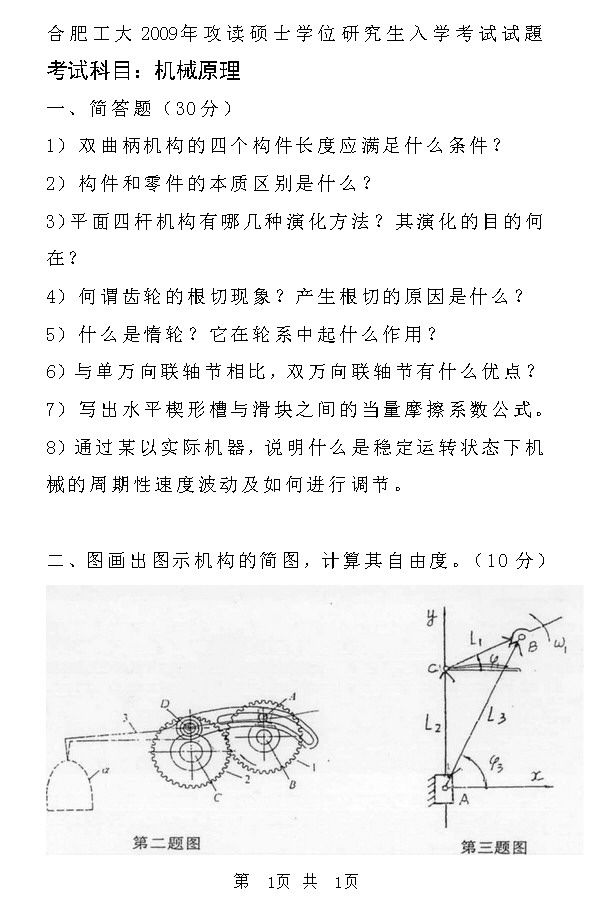 合肥工大2009年攻读硕士学位研究生入学考试试题
考试科目：机械原理
一、简答题（30分）
1）双曲柄机构的四个构件长度应满足什么条件？
2）构件和零件的本质区别是什么？
3)平面四杆机构有哪几种演化方法？其演化的目的何
在？
4）何谓齿轮的根切现象？产生根切的原因是什么？
5）什么是惰轮？它在轮系中起什么作用？
6）与单万向联轴节相比，双万向联轴节有什么优点？
7）写出水平楔形槽与滑块之间的当量摩擦系数公式。
8）通过某以实际机器，说明什么是稳定运转状态下机
械的周期性速度波动及如何进行调节。
二、图画出图示机构的简图，计算其自由度。（10分）
y
L1
B
ω1
φ
C
D
A
3
L2
L3
φ3
2
1
C
B
x
A
第二题图
第三题图
第 1页 共 1页